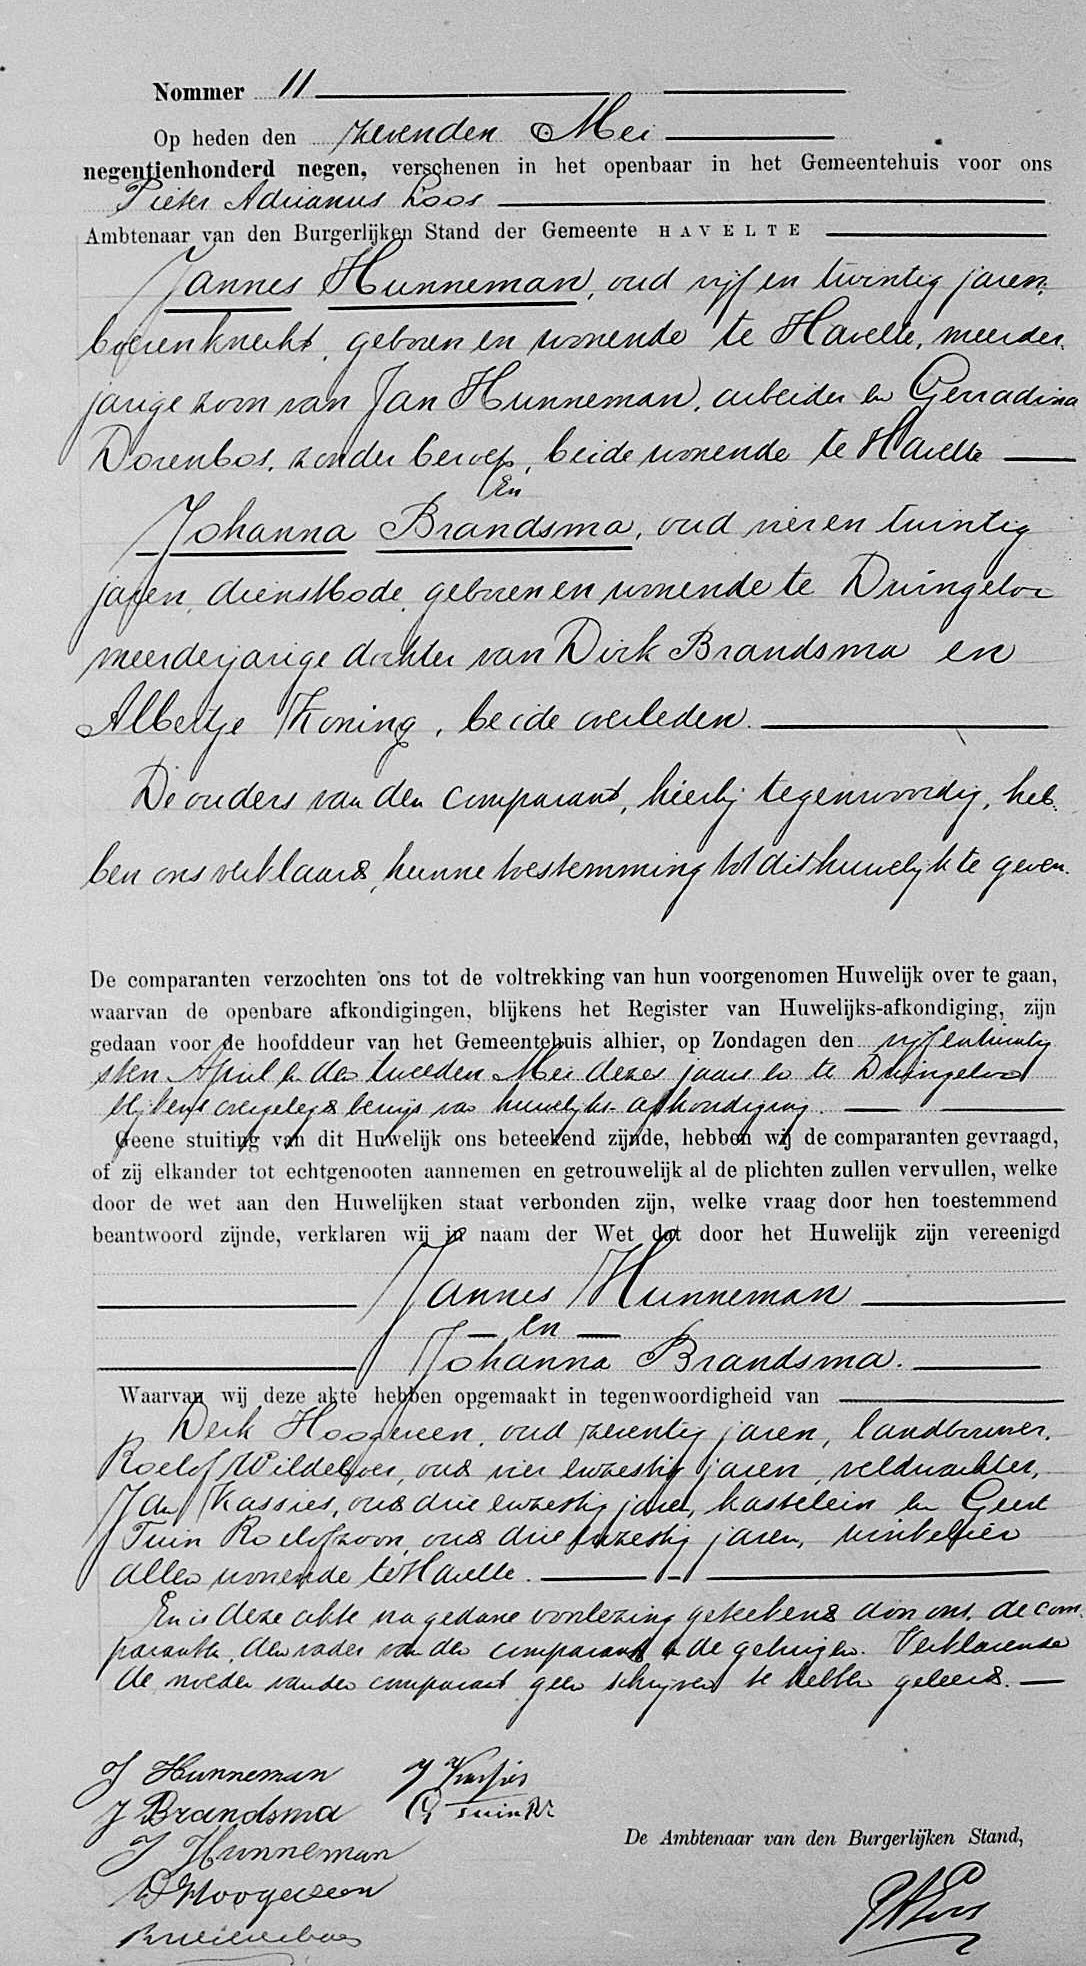 Nommer 11
Op heden den zevenden Mei
negentienhonderd negen, verschenen in het openbaar in het Gemeentehuis voor ons
Pieter Adrianus Loos
Ambtenaar van den Burgerlijken Stand der Gemeente HAVELTE
Jannes Hunneman, oud vijf en twintig jaren,
boerenknecht, geboren en wonende te Havelte, meerder-
jarige zoon van Jan Hunneman, arbeider en Gerradina
Dorenbos, zonder beroep, beide wonende te Havelte
En
Johanna Brandsma, oud vier en twintig
jaren, dienstbode, geboren en wonende te Dwingeloo
meerderjarige dochter van Dirk Brandsma en
Albertje Koning, beide overleden.
De ouders van den comparant, hierbij tegenwoordig, heb-
ben ons verklaard, hunne toestemming tot dit huwelijk te geven.
De comparanten verzochten ons tot de voltrekking van hun voorgenomen Huwelijk over te gaan,
waarvan de openbare afkondigingen, blijkens het Register van Huwelijks-afkondiging, zijn
gedaan voor de hoofddeur van het Gemeentehuis alhier, op Zondagen den vijfentwintig
sten April en den tweeden Mei dezes jaars en te Dwingeloo
blijkens overgelegd bewijs van huwelijks-afkondiging.
Geene stuiting van dit Huwelijk ons beteekend zijnde, hebben wij de comparanten gevraagd,
of zij elkander tot echtgenooten aannemen en getrouwelijk al de plichten zullen vervullen, welke
door de wet aan den Huwelijken staat verbonden zijn, welke vraag door hen toestemmend
beantwoord zijnde, verklaren wij in naam der Wet dat door het Huwelijk zijn vereenigd
Jannes Hunneman
en
Johanna Brandsma.
Waarvan wij deze akte hebben opgemaakt in tegenwoordigheid van
Derk Hoogeveen, oud zeventig jaren, landbouwer,
Roelof Wildeboer, oud vier enzestig jaren, veldwachter,
Jan Kassies, oud drie enzestig jaren, kastelein en Geert
Tuin Roelofzoon, oud drie enzestig jaren, winkelier
allen wonende te Havelte.
En is deze akte na gedane voorlezing geteekend door ons, de com-
paranten, den vader van den comparant en de getuigen. Verklarende
de moeder van den comparant geen schrijven te hebben geleerd.
J Hunneman J Kassies
J Brandsma G Tuin Rz
J Hunneman
De Ambtenaar van den Burgerlijken Stand,
D Hoogeveen
R Wildeboer
PALoos